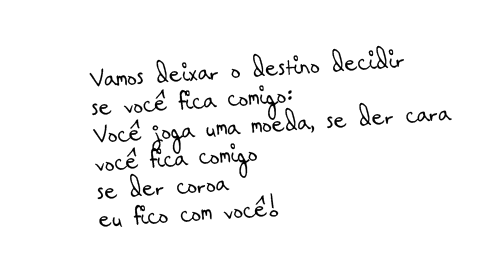 Vamos deixar o destino decidir
se você fica comigo:
Você joga uma moeda, se der cara
você fica comigo
se der coroa
eu fico com você!